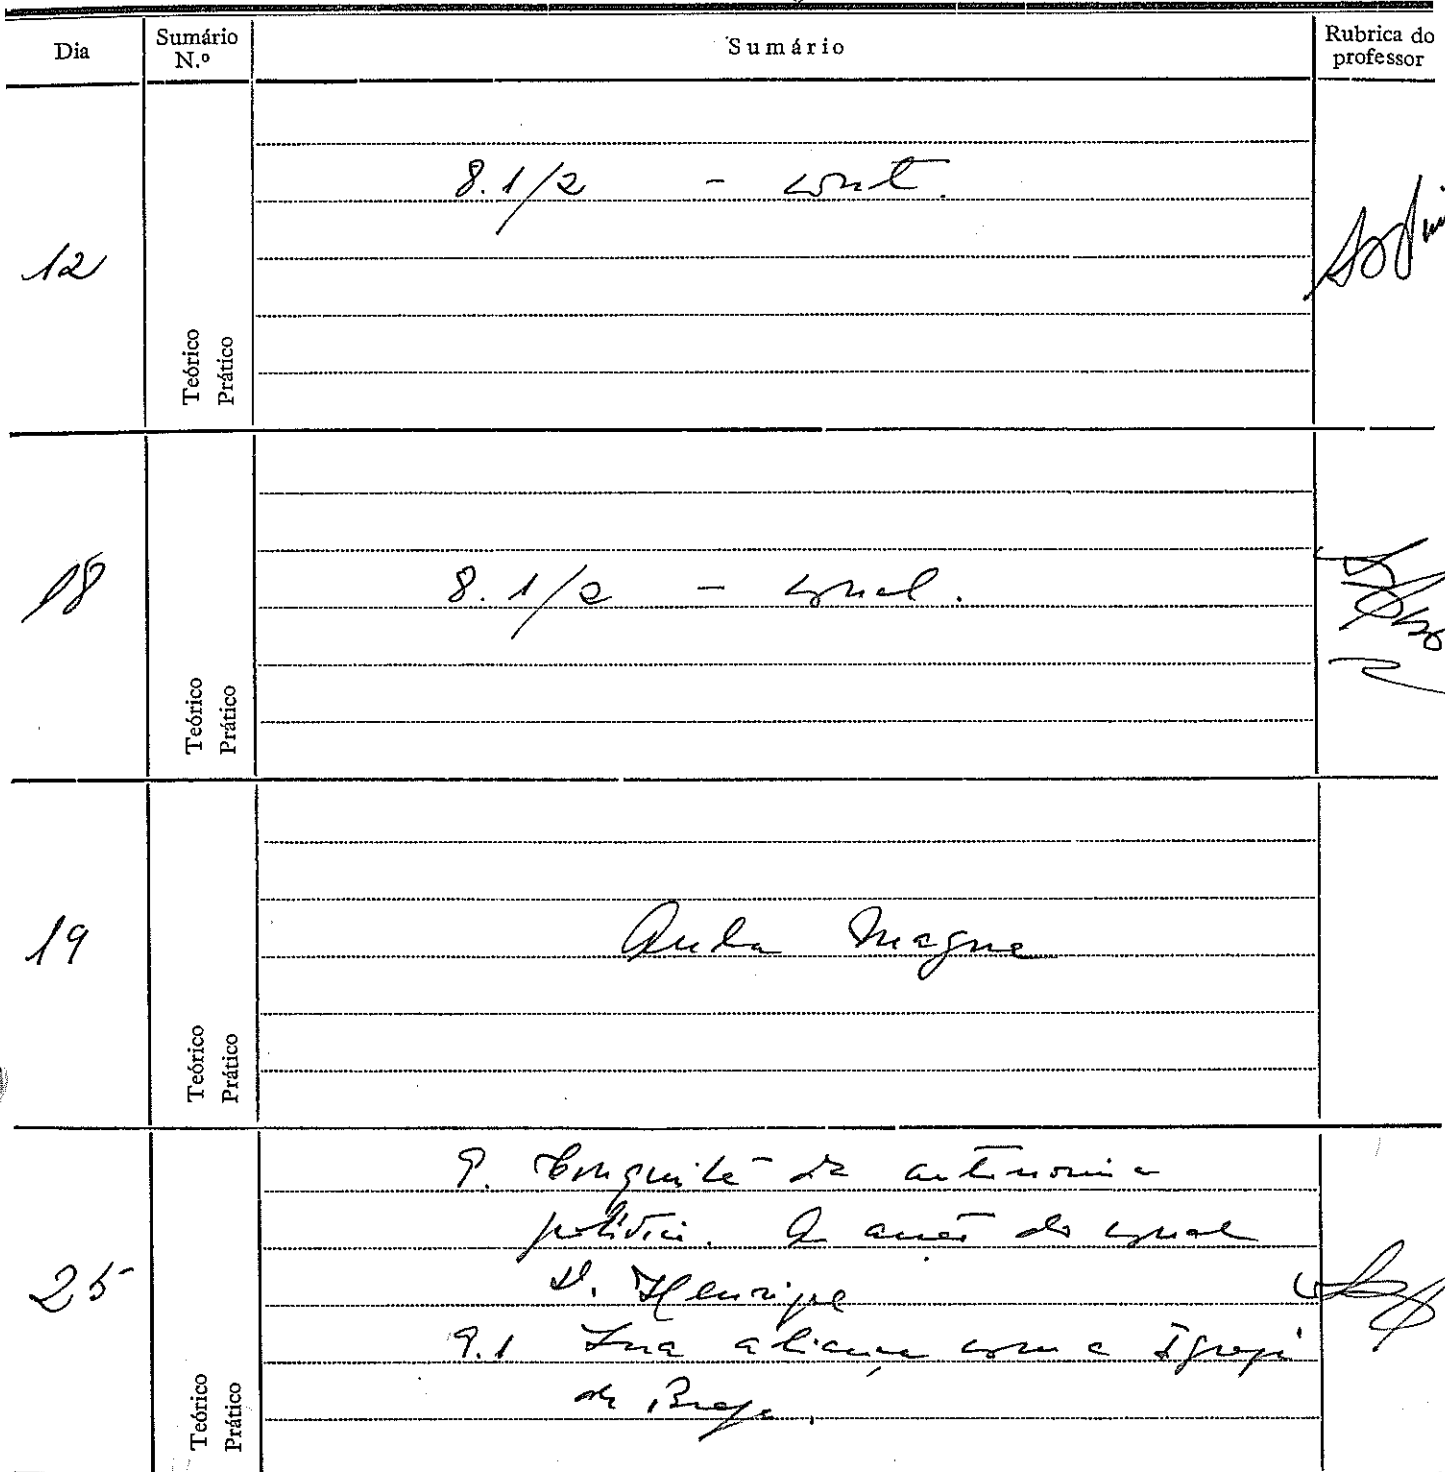 Dia
Sumário
N.º
Sumário
Rubrica do
professor
12
Teórico
Prático
8.1/2 - cont.
18
Teórico
Prático
8.1/2 -
19
Teórico
Prático
Aula Magna
25
Teórico
Prático
9. Conquista da autonomia
política. A acção do
D. Henrique
9.1 Sua aliança com a Igreja
de Braga.